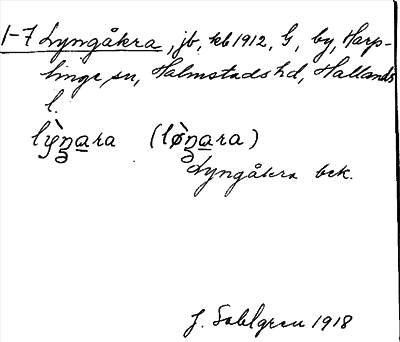 1-7 Lyngåkra, jb, kb 1912, G, by, Harp-
linge sn, Halmstads hd, Hallands
l.
lỳŋara (lø̀ŋara)
Lyngåkra bck.
J. Sahlgren 1918